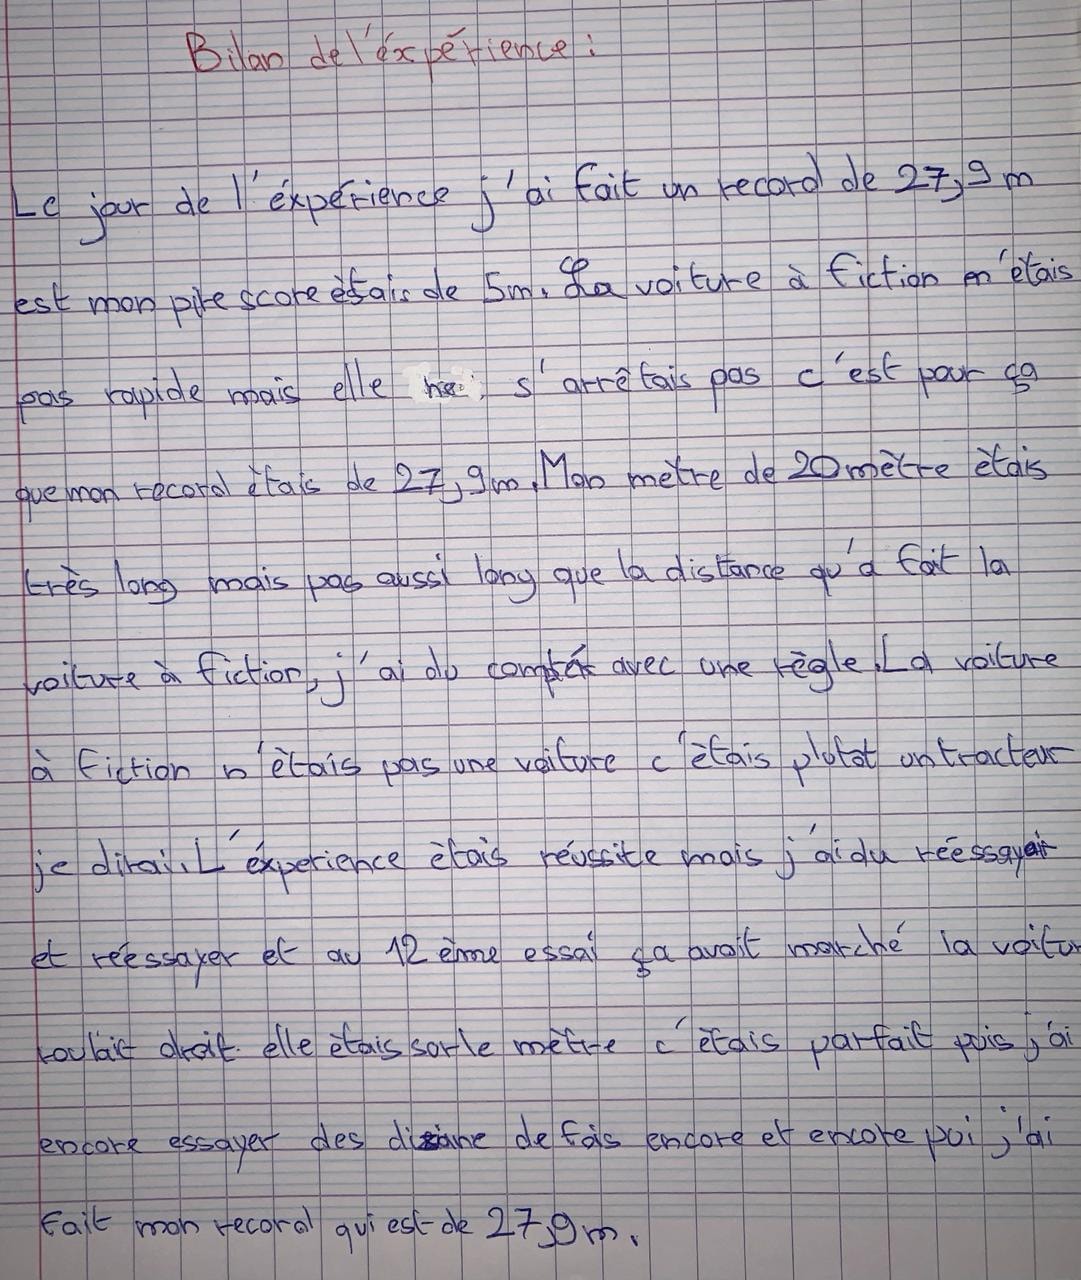 Bilan de l'éxpérience :
Le jour de l'éxpérience j'ai fait un record de 27,9 m
est mon pire score ètais de 5m. La voiture à fiction n'ètais
pas rapide mais elle ne s'arrêtais pas c'est pour ça
que mon record ètais de 27,9m. Mon mètre de 20 mètre ètais
très long mais pas aussi long que la distance qu'a fait la
voiture à fiction, j'ai du compter avec une règle. La voiture
à fiction n'ètais pas une voiture c'ètais plutot un tracteur
je dirai. L'éxperience ètais réussite mais j'ai du réessayer
et réessayer et au 12 ème essai ça avait marché la voitur
roulait droit elle ètais sur le mètre c'ètais parfait puis j'ai
encore essayer des dizaine de fois encore et encore pui j'ai
fait mon record qui est de 27,9m.